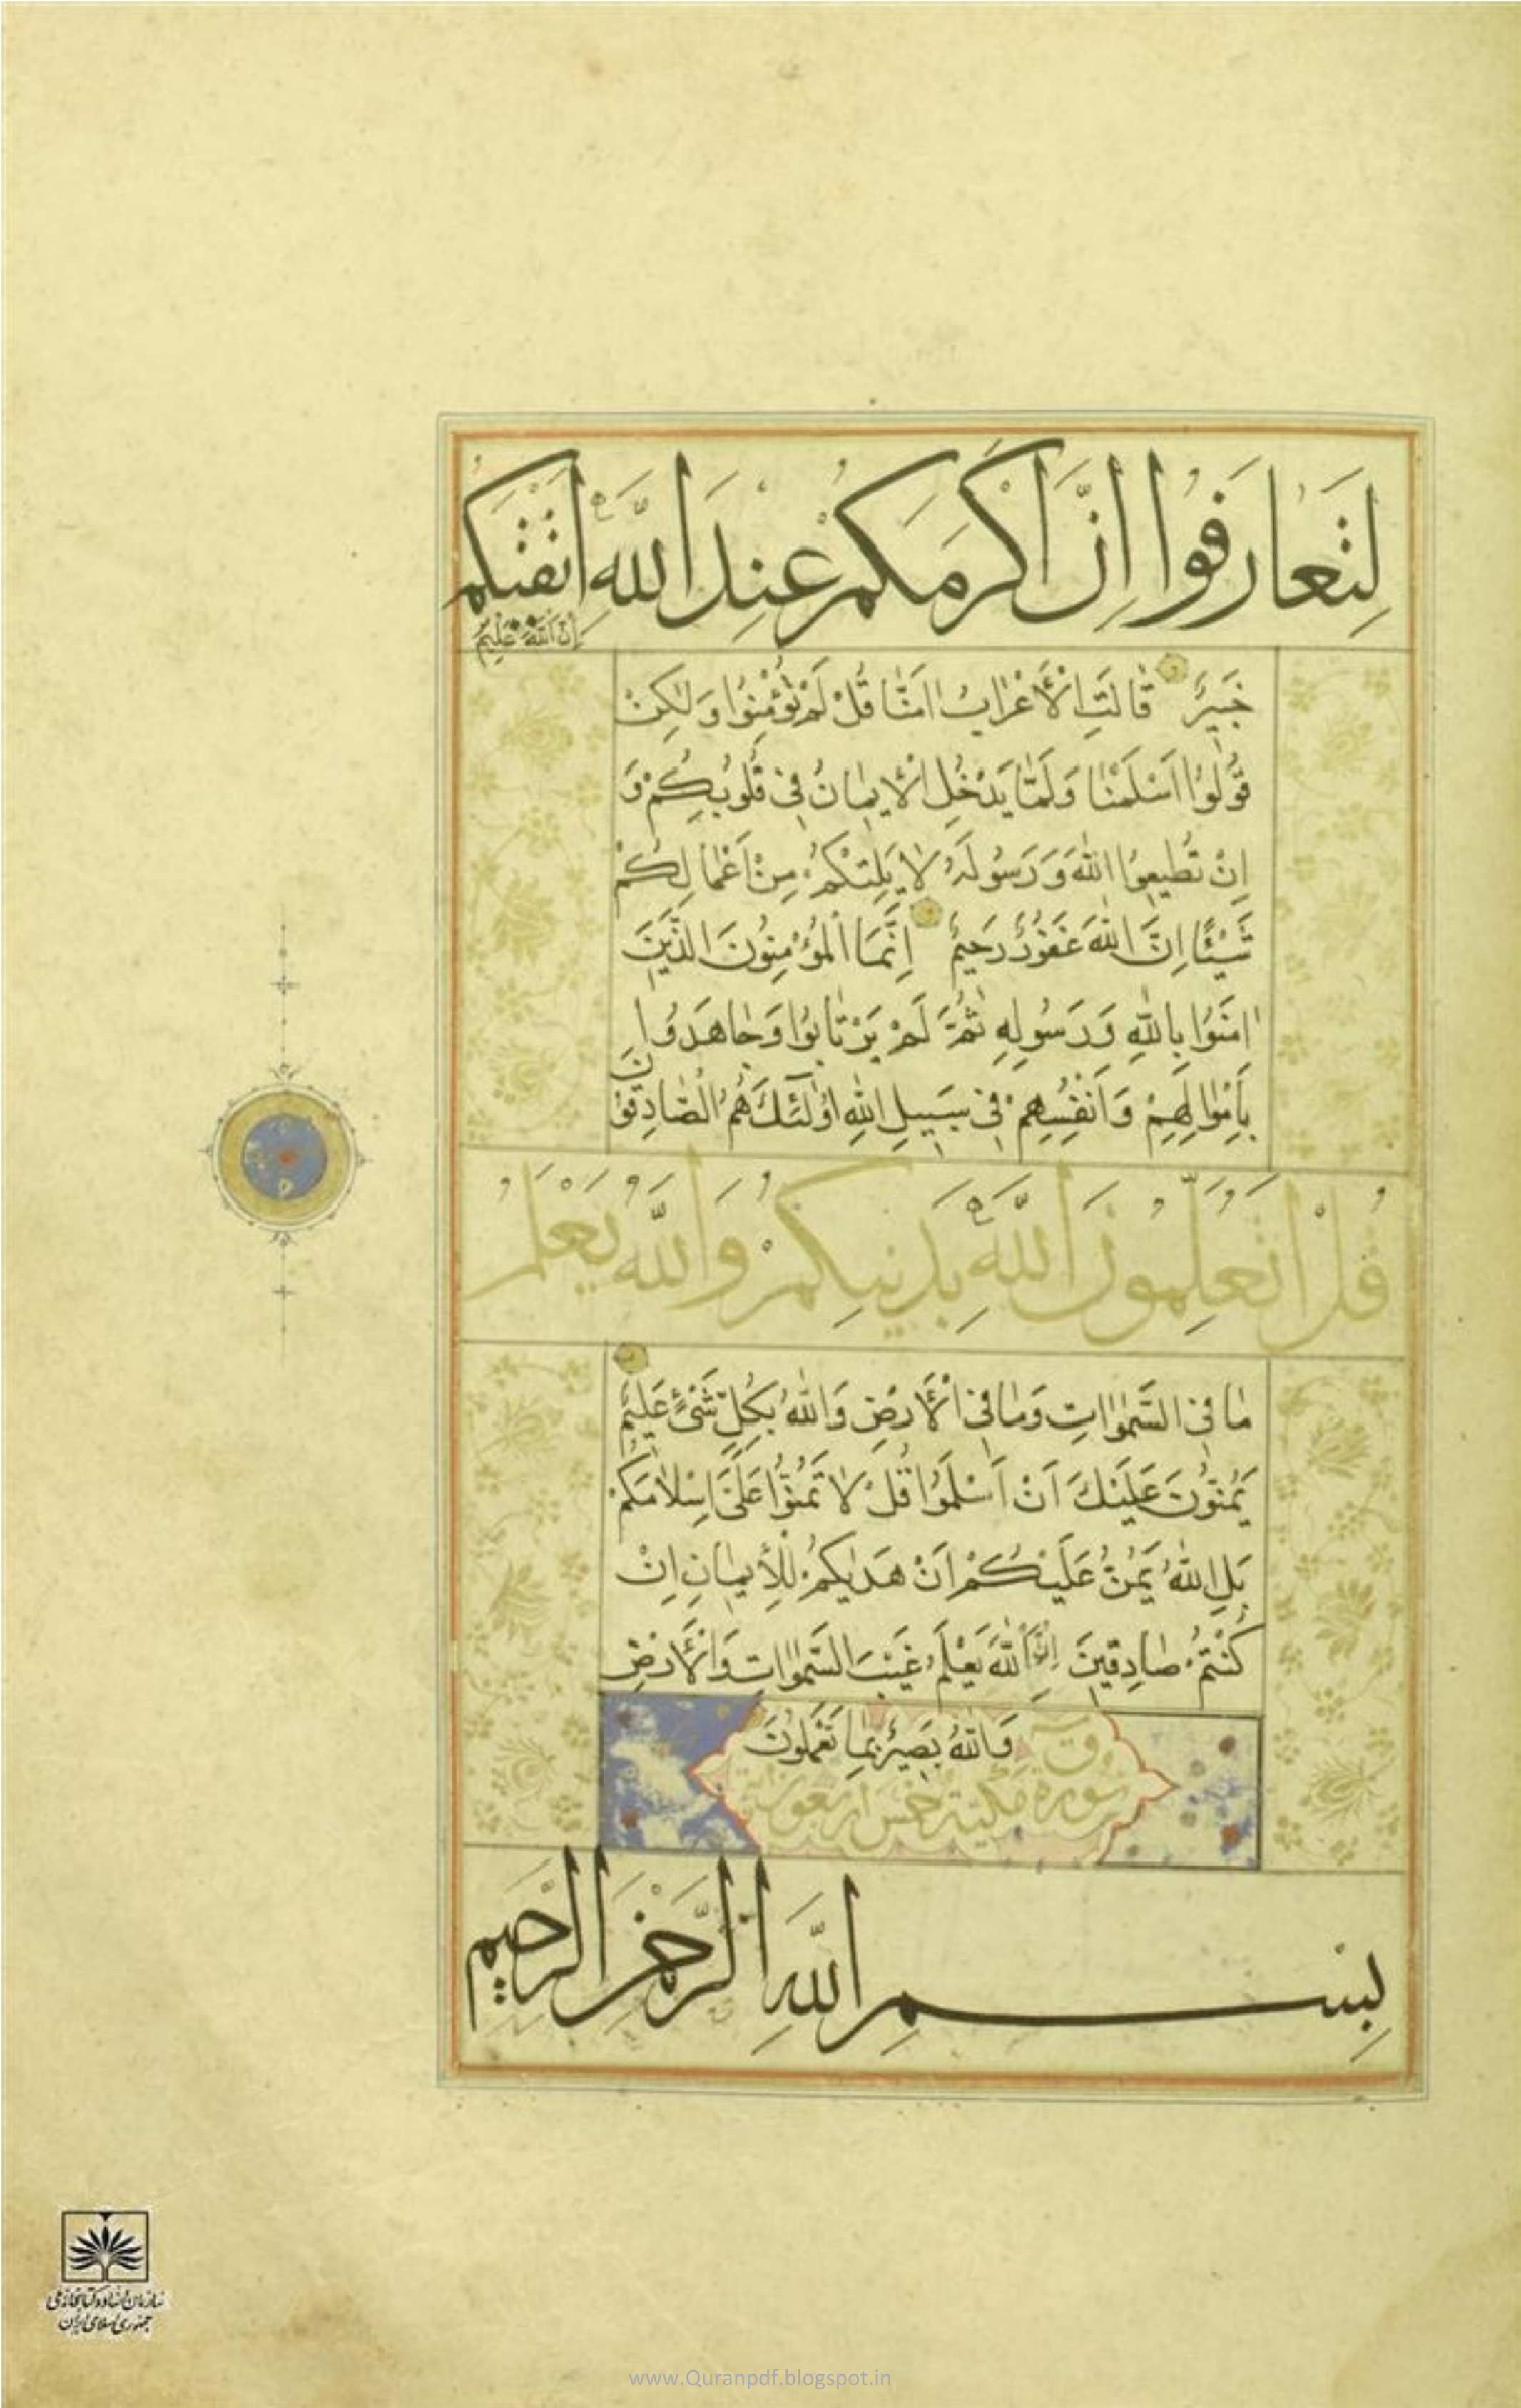 لِتَعَارَفُوا اِنَّ اَكْرَمَكُمْ عِنْدَ اللَّهِ اَتْقٰىكُمْ
اِنَّ اللّٰهَ عَلِيمٌ
خَبِيرٌ قَالَتِ الْأَعْرَابُ اٰمَنَّا قُلْ لَمْ تُؤْمِنُوا وَلٰكِنْ
قُولُوا اَسْلَمْنَا وَلَمَّا يَدْخُلِ الْأِيمَانُ فِي قُلُوبِكُمْ وَ
اِنْ تُطِيعُوا اللّٰهَ وَرَسُولَهُ لَا يَلِتْكُمْ مِنْ اَعْمَالِكُمْ
شَيْئًا اِنَّ اللّٰهَ غَفُورٌ رَحِيمٌ اِنَّمَا الْمُؤْمِنُونَ الَّذِينَ
اٰمَنُوا بِاللّٰهِ وَرَسُولِهِ ثُمَّ لَمْ يَرْتَابُوا وَجَاهَدُوا
بِأَمْوَالِهِمْ وَاَنْفُسِهِمْ فِي سَبِيلِ اللّٰهِ اُولٰئِكَ هُمُ الصَّادِقُونَ
قُلْ اَتُعَلِّمُونَ اللَّهَ بِدِينِكُمْ وَاللَّهُ يَعْلَمُ
مَا فِي السَّمٰوَاتِ وَمَا فِي الْأَرْضِ وَاللّٰهُ بِكُلِّ شَيْءٍ عَلِيمٌ
يَمُنُّونَ عَلَيْكَ اَنْ اَسْلَمُوا قُلْ لَا تَمُنُّوا عَلَيَّ اِسْلَامَكُمْ
بَلِ اللّٰهُ يَمُنُّ عَلَيْكُمْ اَنْ هَدٰيكُمْ لِلْأِيمَانِ اِنْ
كُنْتُمْ صَادِقِينَ اِنَّ اللّٰهَ يَعْلَمُ غَيْبَ السَّمٰوَاتِ وَالْأَرْضِ
وَاللّٰهُ بَصِيرٌ بِمَا تَعْمَلُونَ
سورة ق مكية خمس اربعون اية
بِسْمِ اللَّهِ الرَّحْمٰنِ الرَّحِيمِ
سازمان اسناد و کتابخانه ملی
جمهوری اسلامی ایران
www.Quranpdf.blogspot.in